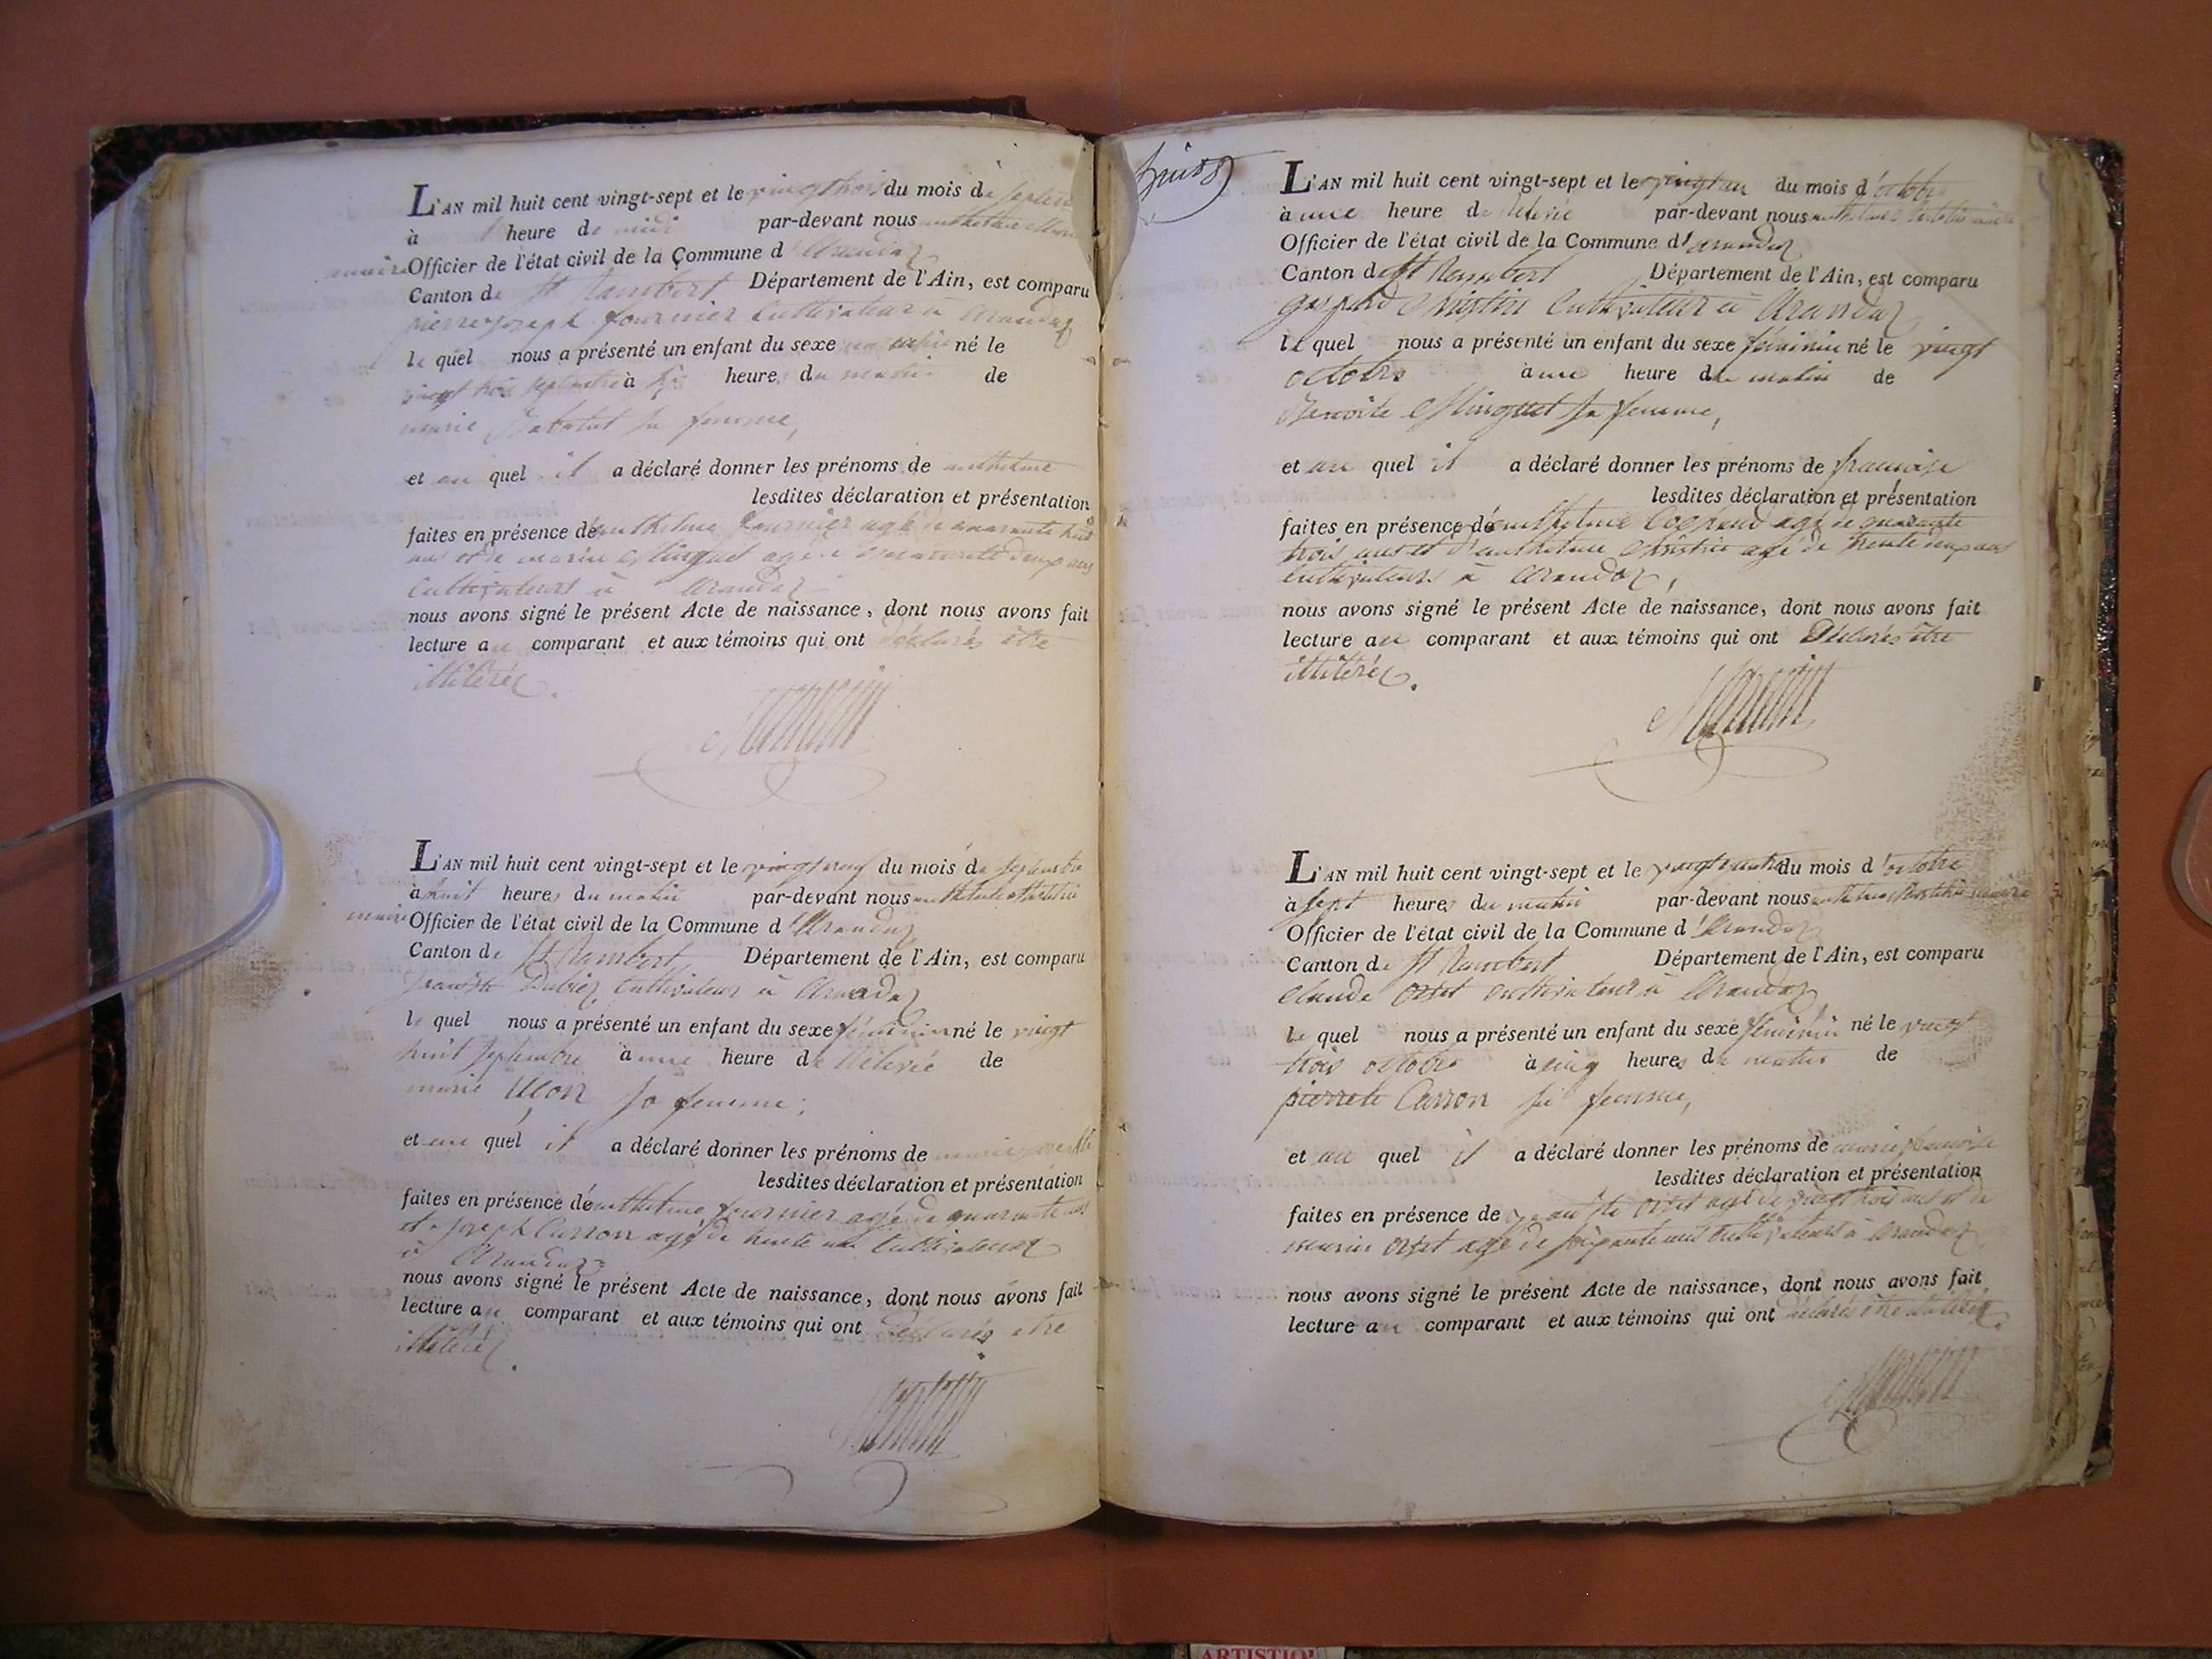 L'AN mil huit cent vingt-sept et le vingt trois du mois de septem
à heure de midi par-devant nous
maire Officier de l'état civil de la Commune d'Arandaz
Canton de St Rambert Département de l'Ain, est comparu
pierre joseph fournier Cultivateur à Arandaz
le quel nous a présenté un enfant du sexe né le
vingt trois septembre à heure, du matin de
marie sa femme,
et au quel il a déclaré donner les prénoms de anthelme
lesdites déclaration et présentation
faites en présence d'anthelme fournier agé de quarante huit
ans et de marin agé de quarante deux ans
Cultivateurs à Arandaz
nous avons signé le présent Acte de naissance, dont nous avons fait
lecture au comparant et aux témoins qui ont déclarés être
illitéréz.
L'AN mil huit cent vingt-sept et le vingt neuf du mois de septembre
à huit heures du matin par-devant nous
maire Officier de l'état civil de la Commune d'Arandaz
Canton de St Rambert Département de l'Ain, est comparu
Dubiez Cultivateur à Arandaz
le quel nous a présenté un enfant du sexe féminin né le vingt
huit septembre à une heure de Relevée de
marie sa femme,
et au quel il a déclaré donner les prénoms de marie
lesdites déclaration et présentation
faites en présence d'anthelme fournier agé de quarante ans
et joseph Carron agé de trente un Cultivateurs
à Arandaz
nous avons signé le présent Acte de naissance, dont nous avons fait
lecture au comparant et aux témoins qui ont Déclarés être
illitéréz.
L'AN mil huit cent vingt-sept et le vingt un du mois d'octobre
à une heure de Relevée par-devant nous
Officier de l'état civil de la Commune d'arandaz
Canton de St Rambert Département de l'Ain, est comparu
gaspard Christin Cultivateur à Arandaz
le quel nous a présenté un enfant du sexe féminin né le vingt
octobre à une heure du matin de
Benoite Minguet sa femme,
et au quel il a déclaré donner les prénoms de francoise
lesdites déclaration et présentation
faites en présence d'anthelme agé de quarante
trois ans et d'anthelme Christin agé de trente deux ans
cultivateurs à Arandaz,
nous avons signé le présent Acte de naissance, dont nous avons fait
lecture au comparant et aux témoins qui ont Déclarés être
illitéréz.
L'AN mil huit cent vingt-sept et le vingt quatre du mois d'octobre
à sept heures du matin par-devant nous
Officier de l'état civil de la Commune d'Arandaz
Canton de St Rambert Département de l'Ain, est comparu
claude orset cultivateur à Arandaz
le quel nous a présenté un enfant du sexe féminin né le vingt
trois octobre à cinq heures du matin de
pierrete Carron sa femme,
et au quel il a déclaré donner les prénoms de marie francoise
lesdites déclaration et présentation
faites en présence de orset agé de vingt trois ans et de
orset agé de soixante ans cultivateurs à Arandaz
nous avons signé le présent Acte de naissance, dont nous avons fait
lecture au comparant et aux témoins qui ont déclarés être illitéréz.